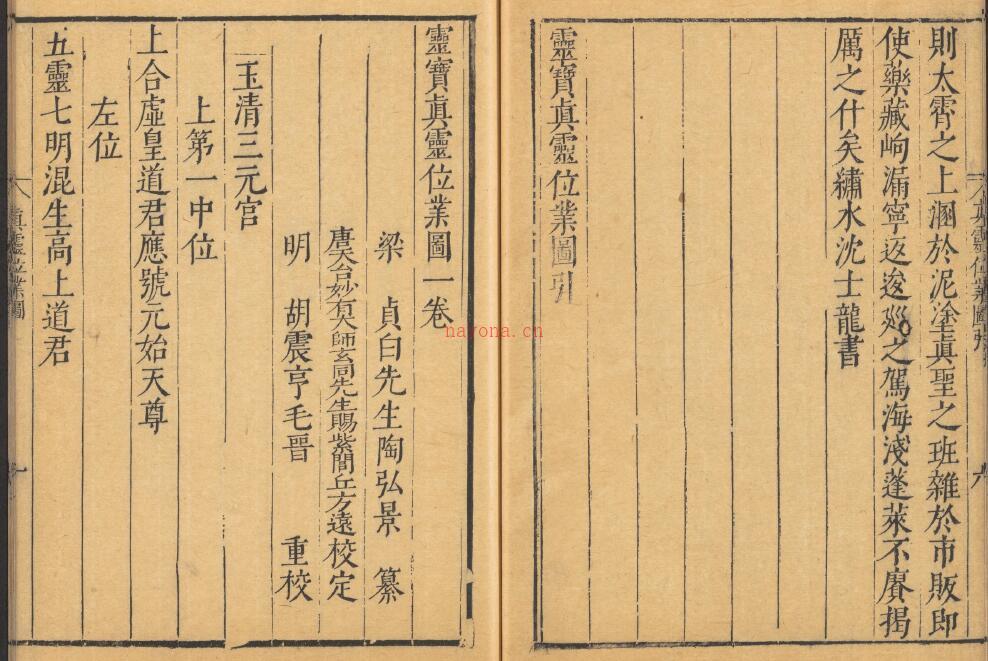 則太霄之上溷於泥塗真聖之班雜於市販即
使藥藏岣漏寧返逡巡之駕海淺蓬萊不賡揭
厲之什矣繡水沈士龍書
靈寶真靈位業圖引
靈寶真靈位業圖一卷
梁 貞白先生陶弘景 纂
唐天台妙有大師玄同先生賜紫閭丘方遠校定
明 胡震亨毛晉 重校
玉清三元宮
上第一中位
上合虛皇道君應號元始天尊
左位
五靈七明混生高上道君
真靈位業圖
nayona.cn